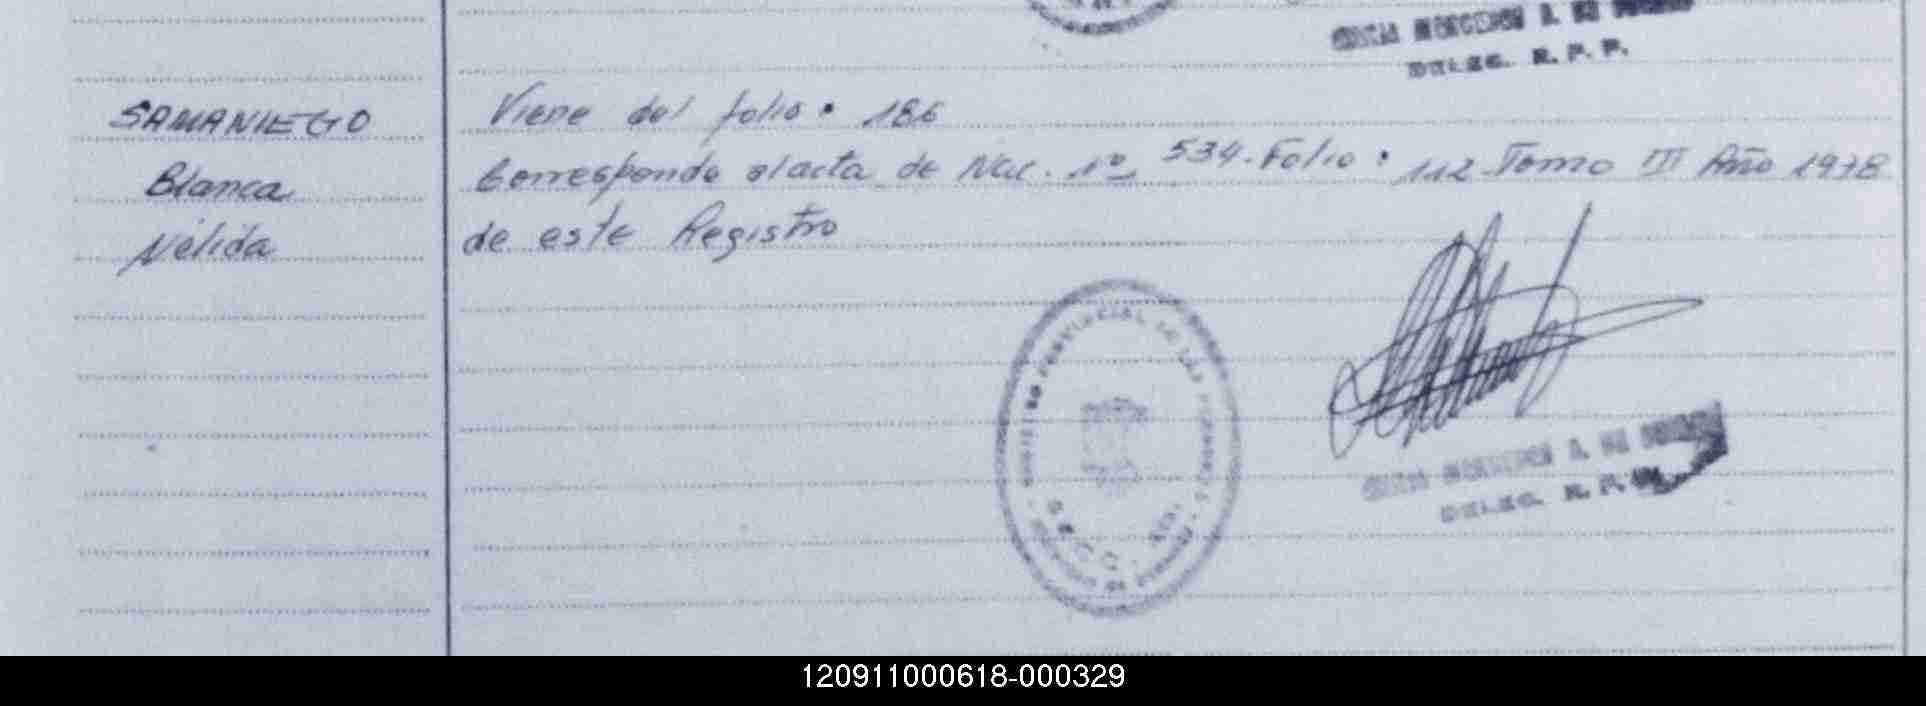 DELEG. R. P. P.
SAMANIEGO
Blanca
Nélida
Viene del folio: 186
Corresponde al acta de Nac. nº 534. Folio: 112 Tomo III Año 1978
de este Registro
REGISTRO PROVINCIAL DE LAS PERSONAS
DELEG. R. P. P.
120911000618-000329